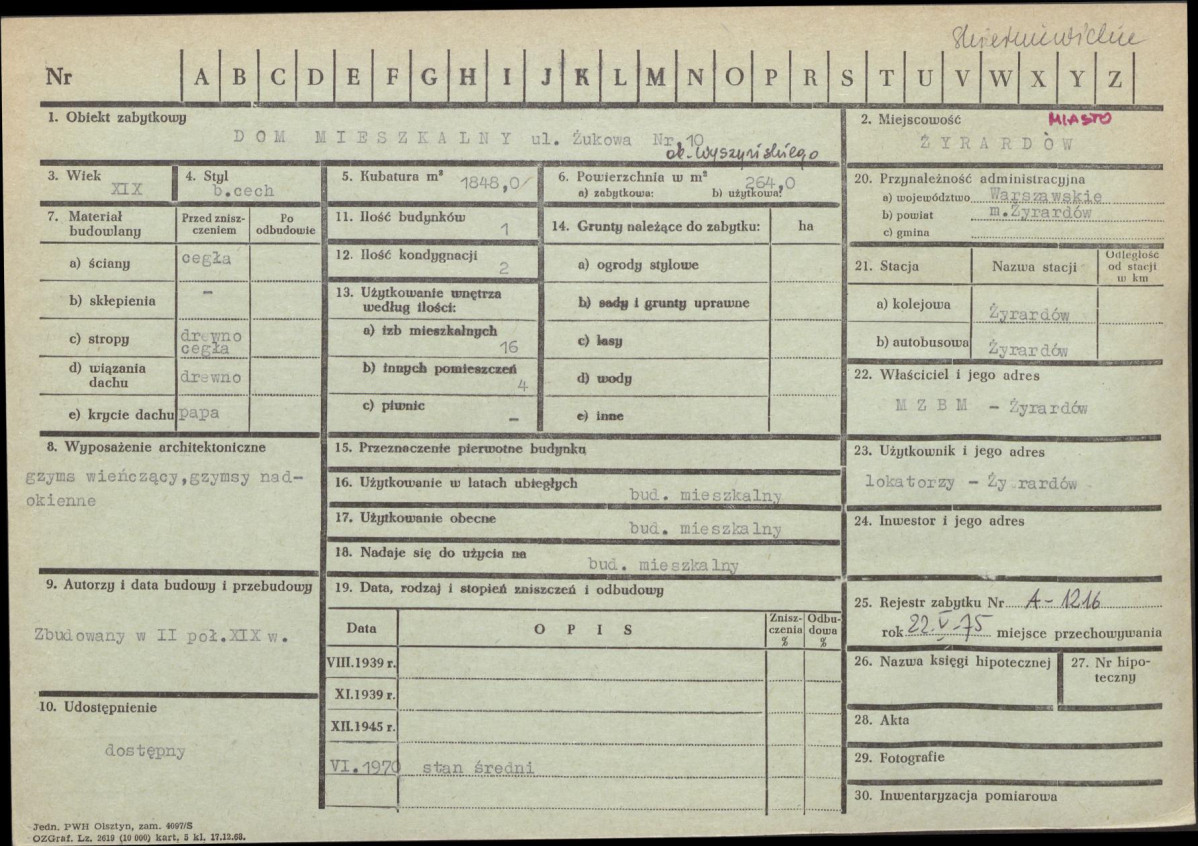 Skierniewickie
Nr A B C D E F G H I J K L M N O P R S T U V W X Y Z
1. Obiekt zabytkowy
DOM MIESZKALNY ul. Żukowa Nr 10
ob. Wyszyńskiego
2. Miejscowość MIASTO
ŻYRARDÓW
3. Wiek
XIX
4. Styl
b.cech
5. Kubatura m³ 1848,0
6. Powierzchnia w m² 264,0
a) zabytkowa: b) użytkowa:
20. Przynależność administracyjna
a) województwo Warszawskie
b) powiat m.Żyrardów
c) gmina
7. Materiał budowlany
Przed zniszczeniem
Po odbudowie
a) ściany cegła
b) sklepienia -
c) stropy drewno
cegła
d) wiązania dachu drewno
e) krycie dachu papa
11. Ilość budynków
1
12. Ilość kondygnacji
2
13. Użytkowanie wnętrza
według ilości:
a) izb mieszkalnych
16
b) innych pomieszczeń
4
c) piwnic
-
14. Grunty należące do zabytku: ha
a) ogrody stylowe
b) sady i grunty uprawne
c) lasy
d) wody
e) inne
21. Stacja Nazwa stacji Odległość
od stacji
w km
a) kolejowa Żyrardów
b) autobusowa Żyrardów
22. Właściciel i jego adres
MZBM - Żyrardów
8. Wyposażenie architektoniczne
gzyms wieńczący,gzymsy nad-
okienne
15. Przeznaczenie pierwotne budynku
16. Użytkowanie w latach ubiegłych
bud. mieszkalny
17. Użytkowanie obecne
bud. mieszkalny
18. Nadaje się do użycia na
bud. mieszkalny
23. Użytkownik i jego adres
lokatorzy - Żyrardów
24. Inwestor i jego adres
9. Autorzy i data budowy i przebudowy
Zbudowany w II poł.XIX w.
19. Data, rodzaj i stopień zniszczeń i odbudowy
Data OPIS Znisz-
czenia
% Odbu-
dowa
%
VIII.1939 r.
XI.1939 r.
XII.1945 r.
VI.1970 stan średni
25. Rejestr zabytku Nr A-1216
rok 22.V-75 miejsce przechowywania
26. Nazwa księgi hipotecznej
27. Nr hipo-
teczny
10. Udostępnienie
dostępny
28. Akta
29. Fotografie
30. Inwentaryzacja pomiarowa
Jedn. PWH Olsztyn, zam. 4097/S
OZGraf. Lz. 2619 (10 000) kart, 5 kl. 17.12.68.